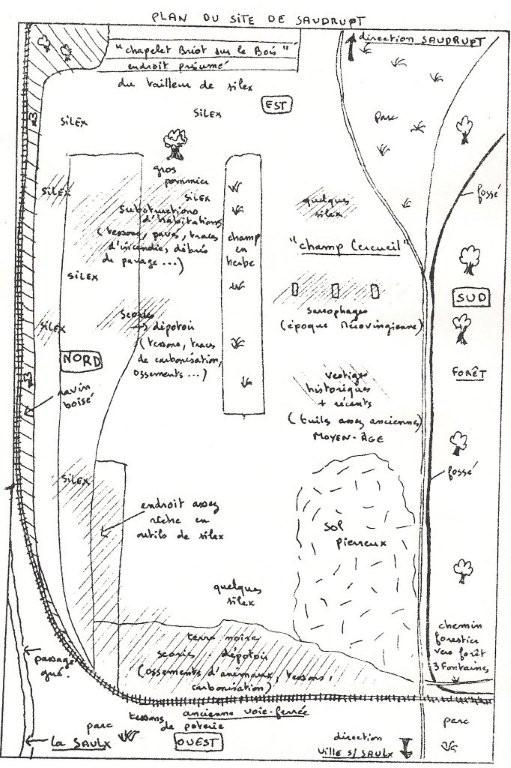 PLAN DU SITE DE SAUDRUPT
"chapelet Briot sur le Bois"
endroit présumé
du tailleur de silex
direction SAUDRUPT
EST
SILEX
SILEX
parc
SILEX
gros
pommier
SILEX
substructions
d'habitations
(tessons, pavés, traces
d'incendies, débris
de pavage ...)
champ
en
herbe
quelques
silex
fossé
"champ Cercueil"
SILEX
SUD
sarcophages
(époque Mérovingienne)
SILEX
scories
→ dépotoir
(tessons, traces
de carbonisation,
ossements ...)
NORD
ravin
boisé
FORÊT
vestiges
historiques
+ récents
(tuiles assez anciennes)
MOYEN-ÂGE
fossé
SILEX
endroit assez
riche en
outils de silex
sol
pierreux
quelques
silex
terre noire
scories dépotoir
(ossements d'animaux, tessons,
carbonisation)
chemin
forestier
vers forêt
3 Fontaines
passage
gué.
ancienne voie-ferrée
parc
tessons
de poterie
la SAULX
OUEST
direction
Ville s/ SAULX
parc